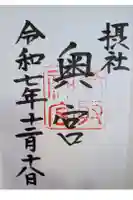 摂社
奥宮
令和七年十二月十八日